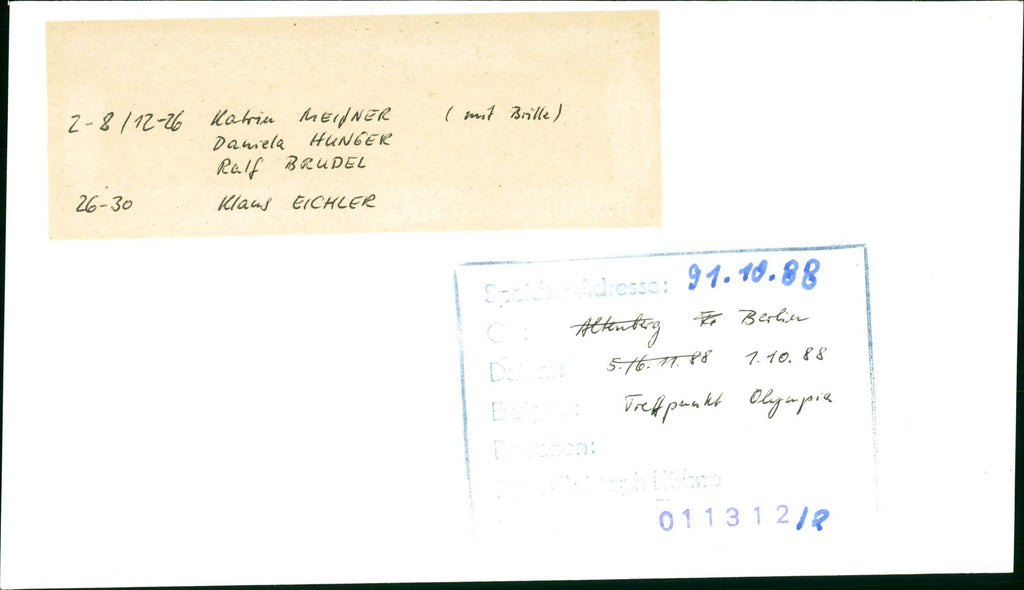 2-8/12-26 Katrin MEIßNER (mit Brille)
Daniela HUNGER
Ralf BRUDEL
26-30 Klaus EICHLER
Speicher-Adresse: 91.10.88
Ort: Altenberg Berlin
Datum: 5.-16.11.88 1.10.88
Ereignis: Treffpunkt Olympia
Personen:
Christoph Höhne
011312/2